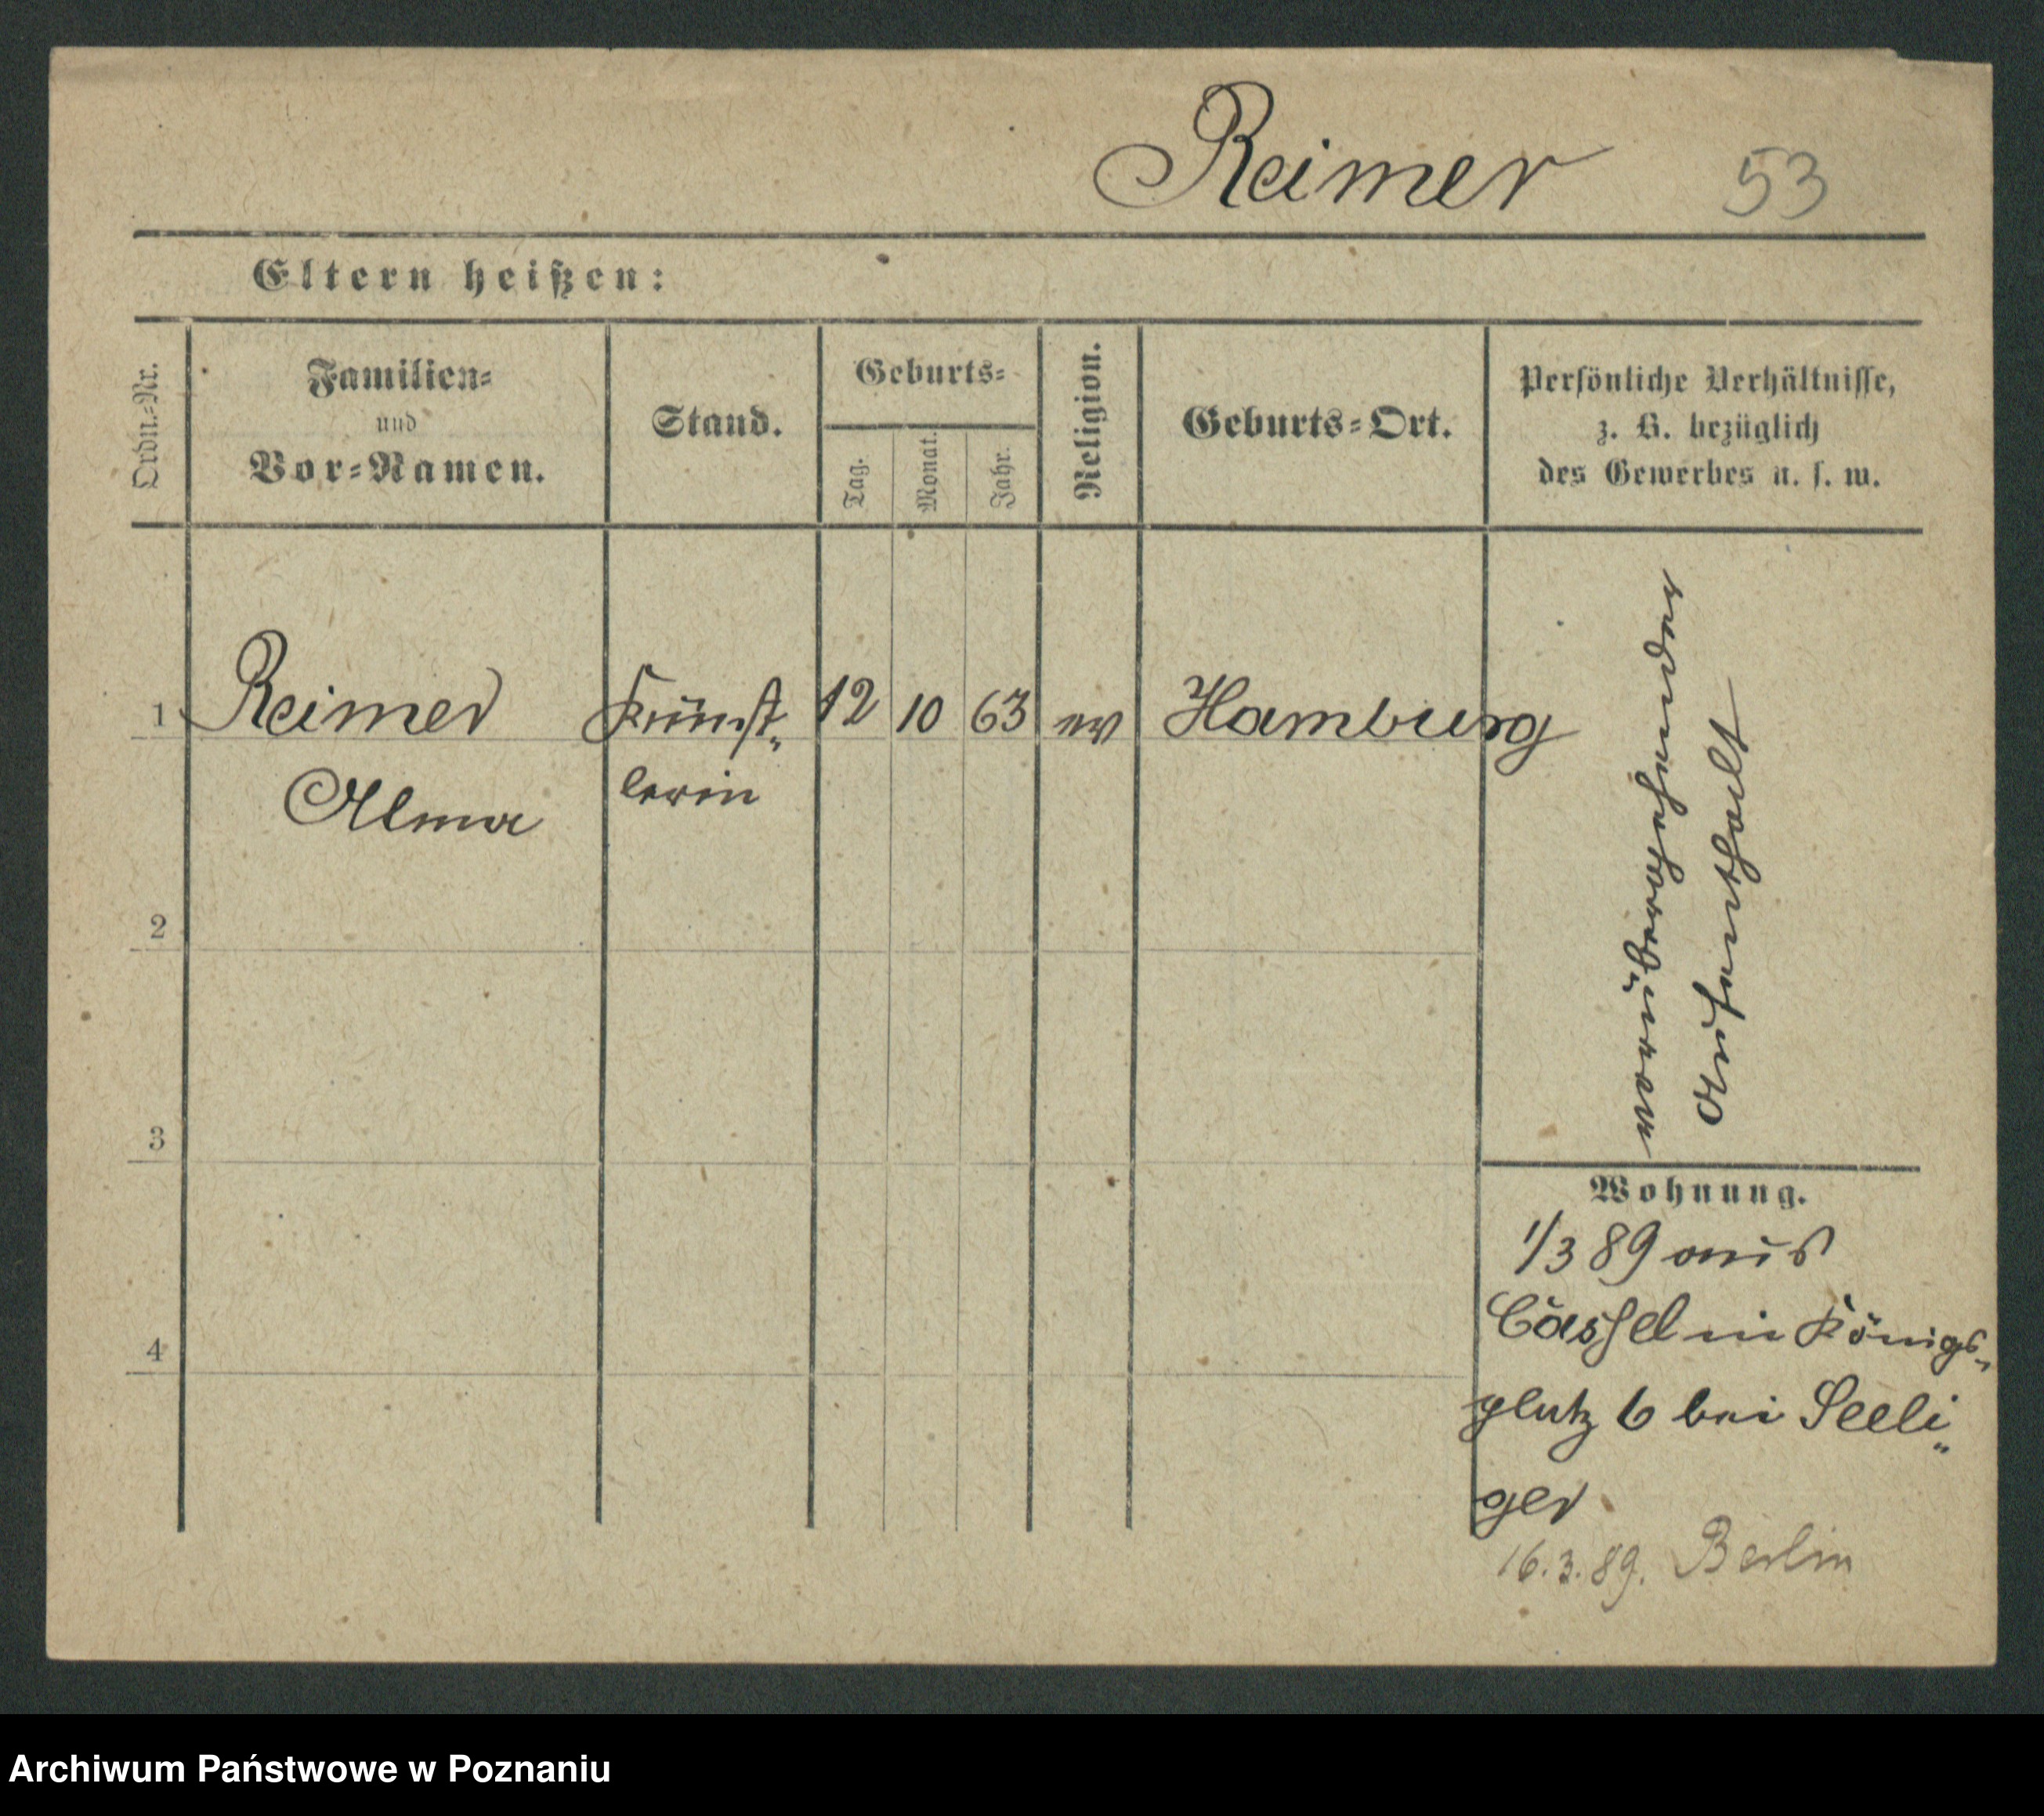 Reimer 53
Eltern heißen:
Ordn.-Nr.
Familien-
und
Vor-Namen.
Stand.
Geburts-
Tag.
Monat.
Jahr.
Religion.
Geburts-Ort.
Persönliche Verhältnisse,
z. B. bezüglich
des Gewerbes u. s. w.
1 Reimer Künst- 12 10 63 ev Hamburg
Alma lerin
2
3
4
vorübergehender
Aufenthalt
Wohnung.
1/3 89 aus
Cassel in Königs-
platz 6 bei Seeli-
ger
16.3.89. Berlin
Archiwum Państwowe w Poznaniu